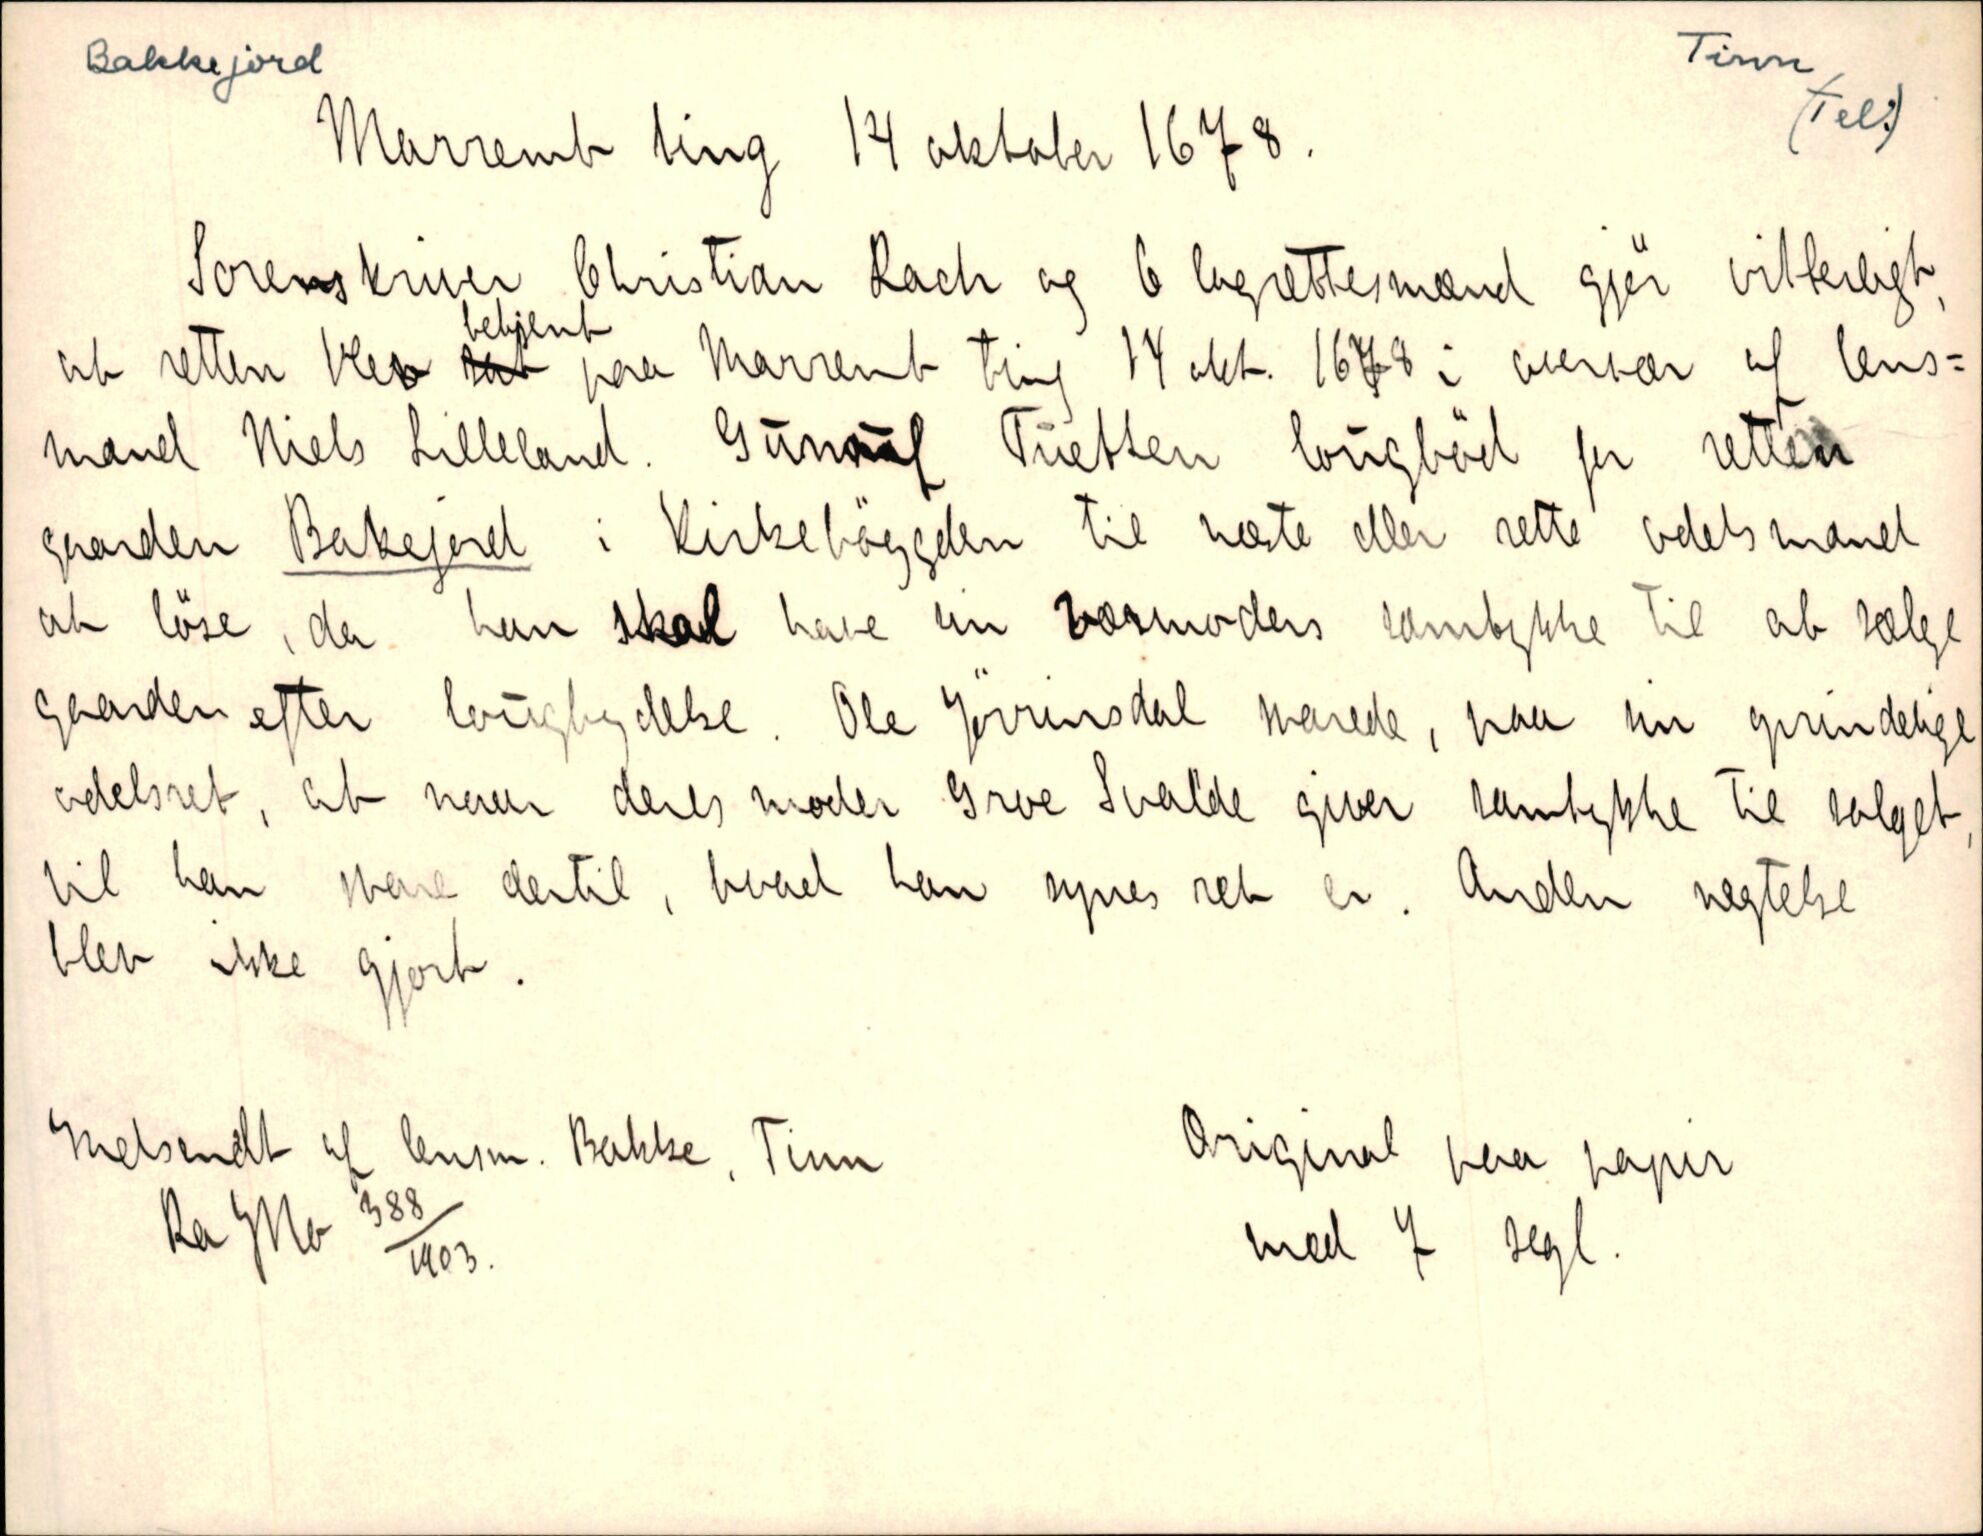 Bakkejord
Tinn
(Tel.)
Marremb ting 14 oktober 1678.
Sorenskriver Christian Rach og 6 lagrettesmænd gjör vitterligt,
at retten blev betjent paa Marremb ting 14 okt. 1678 i overvær af lens=
mand Niels Lilleland. Gunnulf Tuetten lougböd for retten
gaarden Bakejord i Kirkeböygden til næste eller rette odelsmand
at löse, da han skal have sin værmoders samtykke til at sælge
gaarden efter lougbydelse. Ole Jörrinsdal svarede, paa sin grindelige
odelsret, at naar deres moder Groe Svalde giver samtykke til salget,
vil han svare dertil, hvad han synes ret er. Anden negtelse
blev ikke gjort.
Indsendt af lensm. Bakke, Tinn
Ra JNo 388/1903.
Original paa papir
med 7 segl.